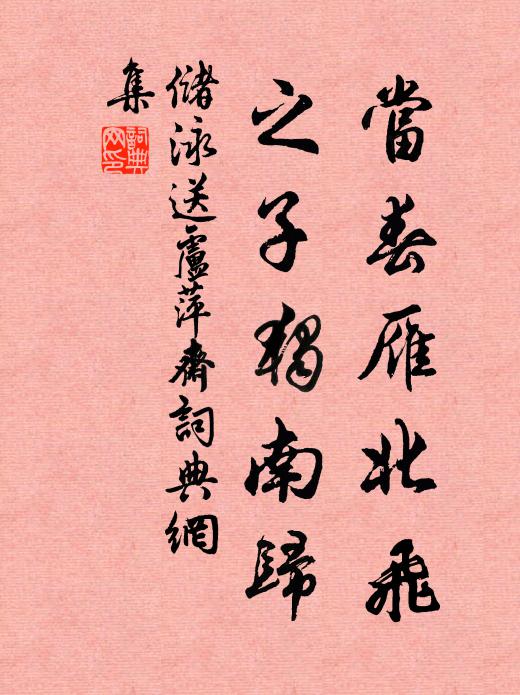 當春雁北飛
之子獨南歸
儲泳送盧萍齋詞典網
集
詞典網印